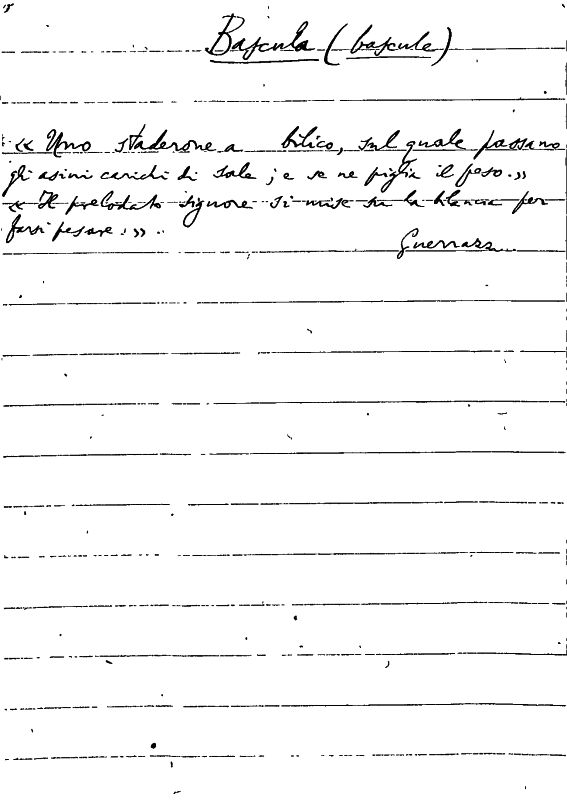 Bascula (bascule)
« Uno staderone a bilico, sul quale passano
gli asini carichi di sale ; e se ne piglia il peso. »
« Il prelodato signore si mise su la bilancia per
farsi pesare. » .